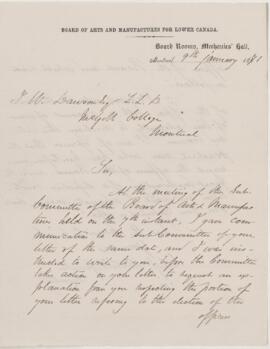 BOARD OF ARTS AND MANUFACTURES FOR LOWER CANADA.
Board Rooms, Mechanics' Hall,
Montreal, 9th January 1861
J. W. Dawson Esq. L.L.D
McGill College
Montreal
Sir,
At the meeting of the Sub-
Committee of the Board of Arts & Manufac
tures held on the 7th instant, I gave com
munication to the Sub-Committee of your
letter of the same date, and I was ins-
tructed to write to you, before the Committee
take action on your letter, to request an ex-
planation from you respecting the portion of
your letter referring to the election of the
officers